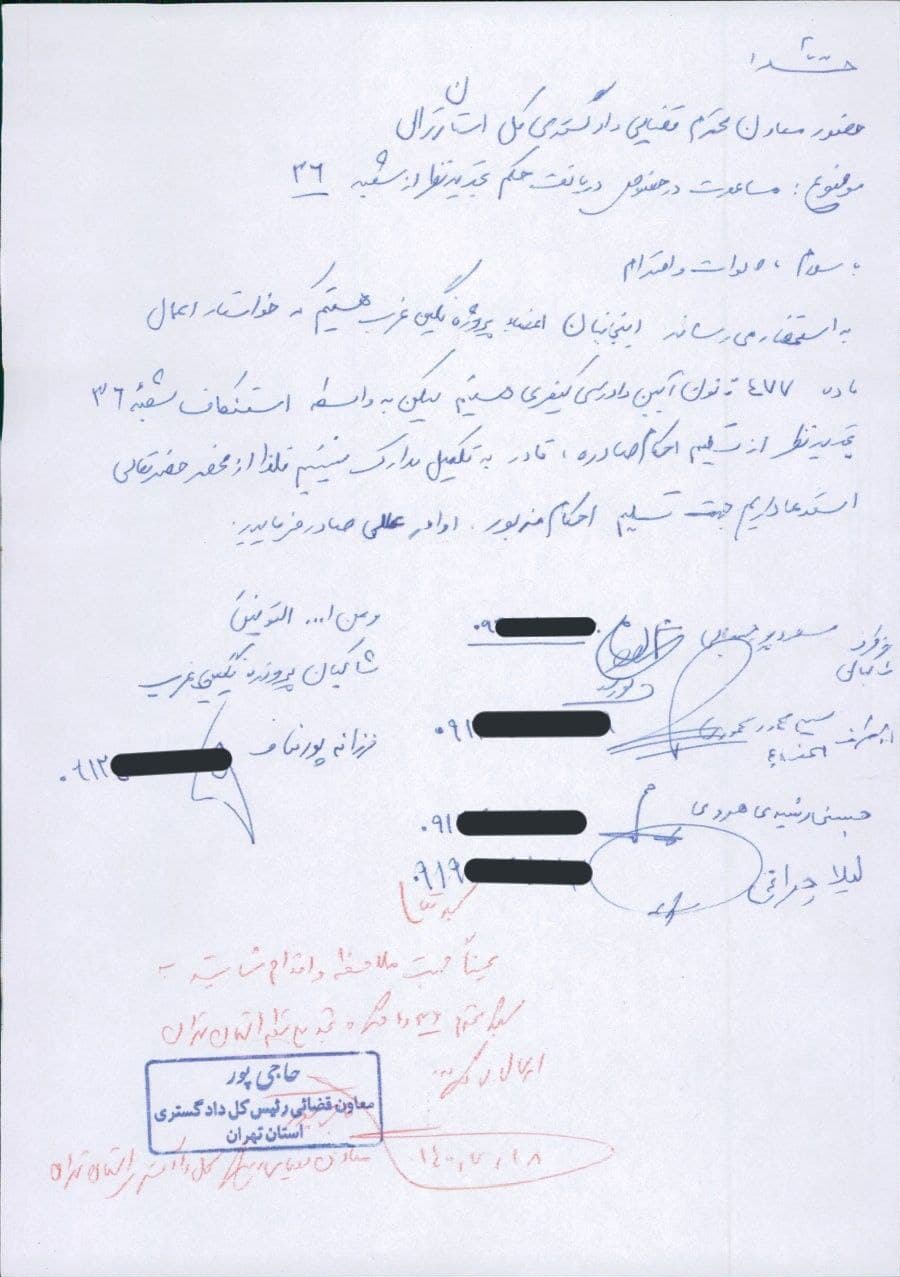 حضور معاون محترم قضایی دادگستری کل استان تهران
موضوع: مساعدت در خصوص دریافت حکم تجدیدنظر از شعبه ۳۶
با سلام، صلوات و احترام
به استحضار می‌رساند اینجانبان اعضاء پروژه نگین غرب هستیم که خواستار اعمال
ماده ۴۷۷ قانون آیین دادرسی کیفری هستیم لیکن به واسطه استنکاف شعبه ۳۶
تجدیدنظر از تسلیم احکام صادره، قادر به تکمیل مدارک نیستیم فلذا از محضر حضرتعالی
استدعا داریم جهت تسلیم احکام مزبور، اوامر عالی صادر فرمایید.
و من ا... التوفیق
شاکیان پرونده نگین غرب
مسعود ۰۹
۰۹۱
فرزانه ۰۹۱۲
۰۹۱
لیلا چراغی ۰۹۱۹
عیناً جهت ملاحظه و اقدام شایسته به
محترم دادگاه تجدیدنظر استان تهران
ارسال می‌گردد
حاجی پور
معاون قضائی رئیس کل دادگستری
استان تهران
معاون قضایی رئیس کل دادگستری استان تهران